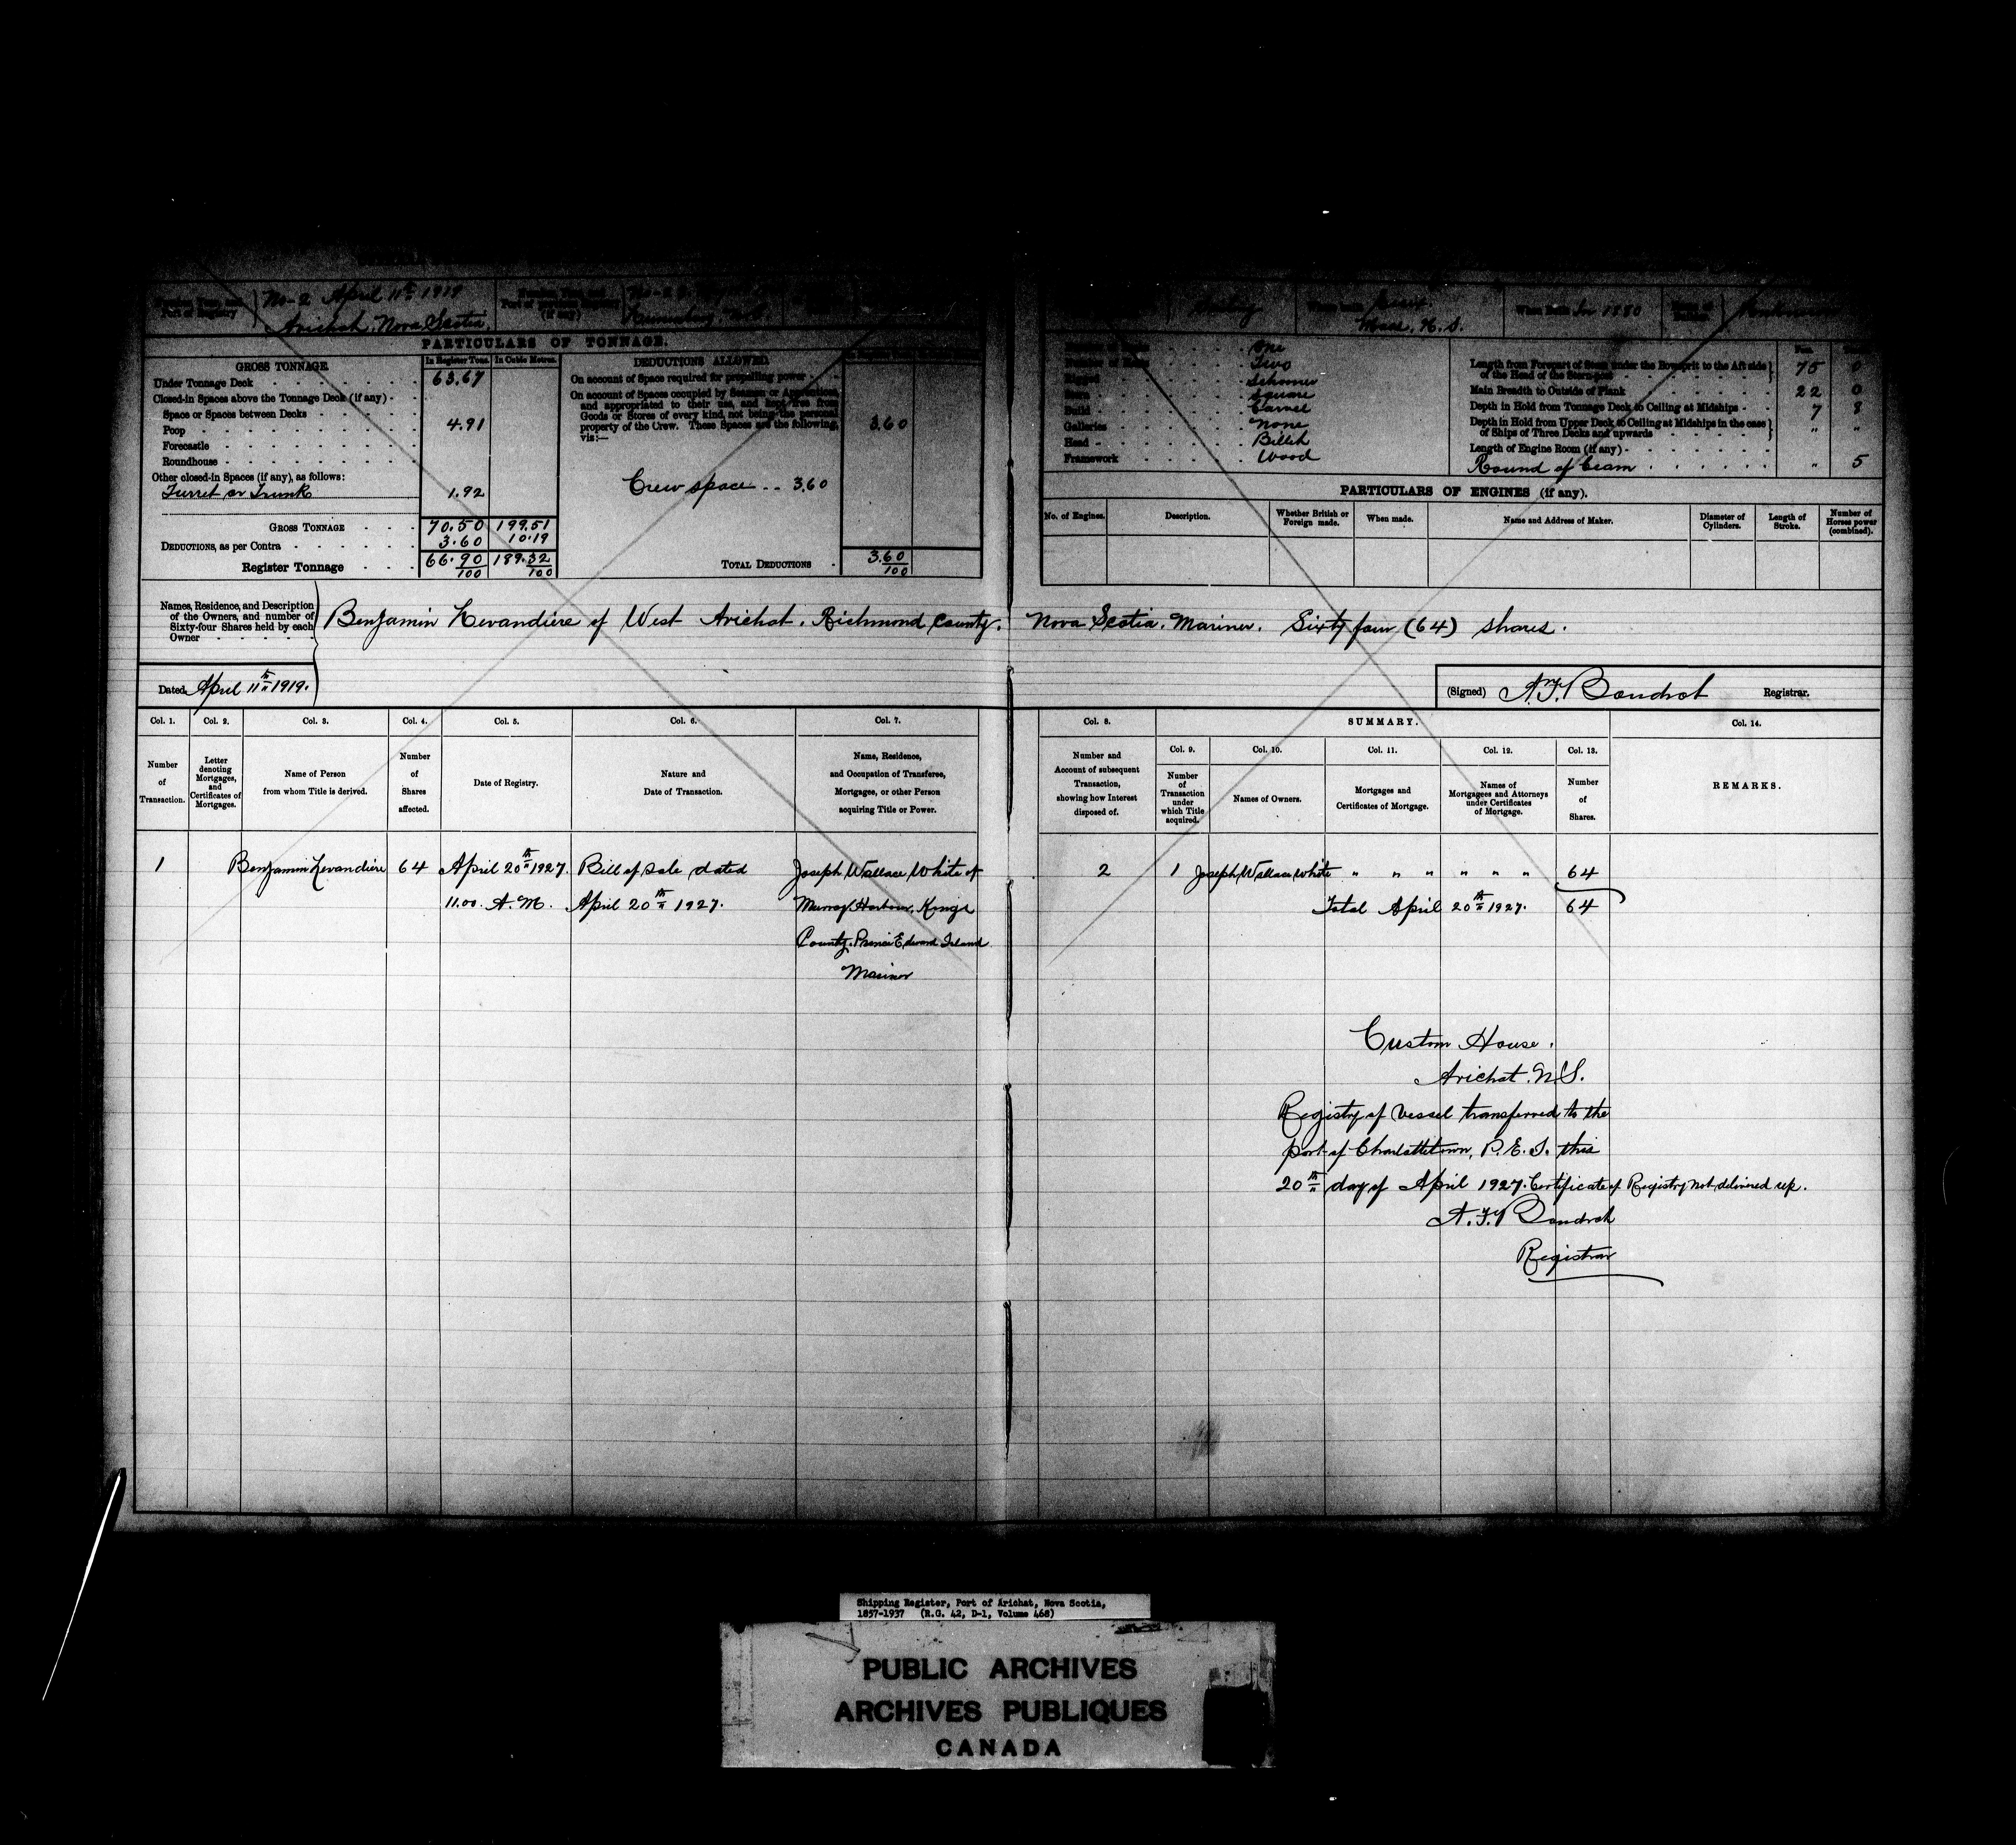 No-2 April 11th 1919
Port of Registry
Arichat, Nova Scotia.
When built In 1880
Mass. U.S.
PARTICULARS OF TONNAGE.
GROSS TONNAGE
In Register Tons. In Cubic Metres.
DEDUCTIONS ALLOWED
Under Tonnage Deck 63.67
Closed-in Spaces above the Tonnage Deck (if any)
Space or Spaces between Decks
Poop 4.91
Forecastle
Roundhouse
Other closed-in Spaces (if any), as follows:
Turret or Trunk 1.92
GROSS TONNAGE 70.50 199.51
DEDUCTIONS, as per Contra 3.60 10.19
Register Tonnage 66.90/100 189.32/100
On account of Space required for propelling power
On account of Spaces occupied by Seamen or Apprentices,
and appropriated to their use, and kept free from
Goods or Stores of every kind, not being the personal
property of the Crew. These Spaces are the following,
viz:— 3.60
Crew space .. 3.60
TOTAL DEDUCTIONS 3.60/100
One
Two
Rigged Schooner
Stern Square
Build Carvel
Galleries None
Head Billet
Framework Wood
Length from Forepart of Stem under the Bowsprit to the Aft side
of the Head of the Stern-post 75 0
Main Breadth to Outside of Plank 22 0
Depth in Hold from Tonnage Deck to Ceiling at Midships 7 8
Depth in Hold from Upper Deck to Ceiling at Midships in the case
of Ships of Three Decks and upwards " "
Length of Engine Room (if any)
Round of beam " 5
PARTICULARS OF ENGINES (if any).
No. of Engines. Description. Whether British or Foreign made. When made. Name and Address of Maker. Diameter of Cylinders. Length of Stroke. Number of Horses power (combined).
Names, Residence, and Description
of the Owners, and number of
Sixty-four Shares held by each
Owner
Benjamin Levandiere of West Arichat. Richmond County. Nova Scotia. Mariner. Sixty four (64) shares.
Dated April 11th 1919.
(Signed) A. F. Boudrot Registrar.
Col. 1. Col. 2. Col. 3. Col. 4. Col. 5. Col. 6. Col. 7. Col. 8. SUMMARY. Col. 14.
Col. 9. Col. 10. Col. 11. Col. 12. Col. 13.
Number of Transaction.
Letter denoting Mortgages, and Certificates of Mortgages.
Name of Person from whom Title is derived.
Number of Shares affected.
Date of Registry.
Nature and Date of Transaction.
Name, Residence, and Occupation of Transferee, Mortgagee, or other Person acquiring Title or Power.
Number and Account of subsequent Transaction, showing how Interest disposed of.
Number of Transaction under which Title acquired.
Names of Owners.
Mortgages and Certificates of Mortgage.
Names of Mortgagees and Attorneys under Certificates of Mortgage.
Number of Shares.
REMARKS.
1 Benjamin Levandiere 64 April 20th 1927. Bill of sale dated Joseph Wallace White of 2 1 Joseph Wallace White " " " " " " 64
11.00. A.M. April 20th 1927. Murray Harbour, Kings Total April 20th 1927. 64
County. Prince Edward Island
Mariner
Custom House.
Arichat. N.S.
Registry of vessel transferred to the
port of Charlottetown, P.E.I. this
20th day of April 1927. Certificate of Registry not delivered up.
A. F. Boudrot
Registrar
Shipping Register, Port of Arichat, Nova Scotia,
1857-1937 (R.G. 42, D-1, Volume 468)
PUBLIC ARCHIVES
ARCHIVES PUBLIQUES
CANADA